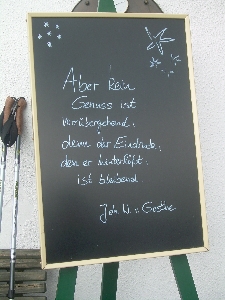 Aber kein
Genuss ist
vorübergehend,
denn der Eindruck,
den er hinterläßt,
ist bleibend.
Joh. W. v. Goethe